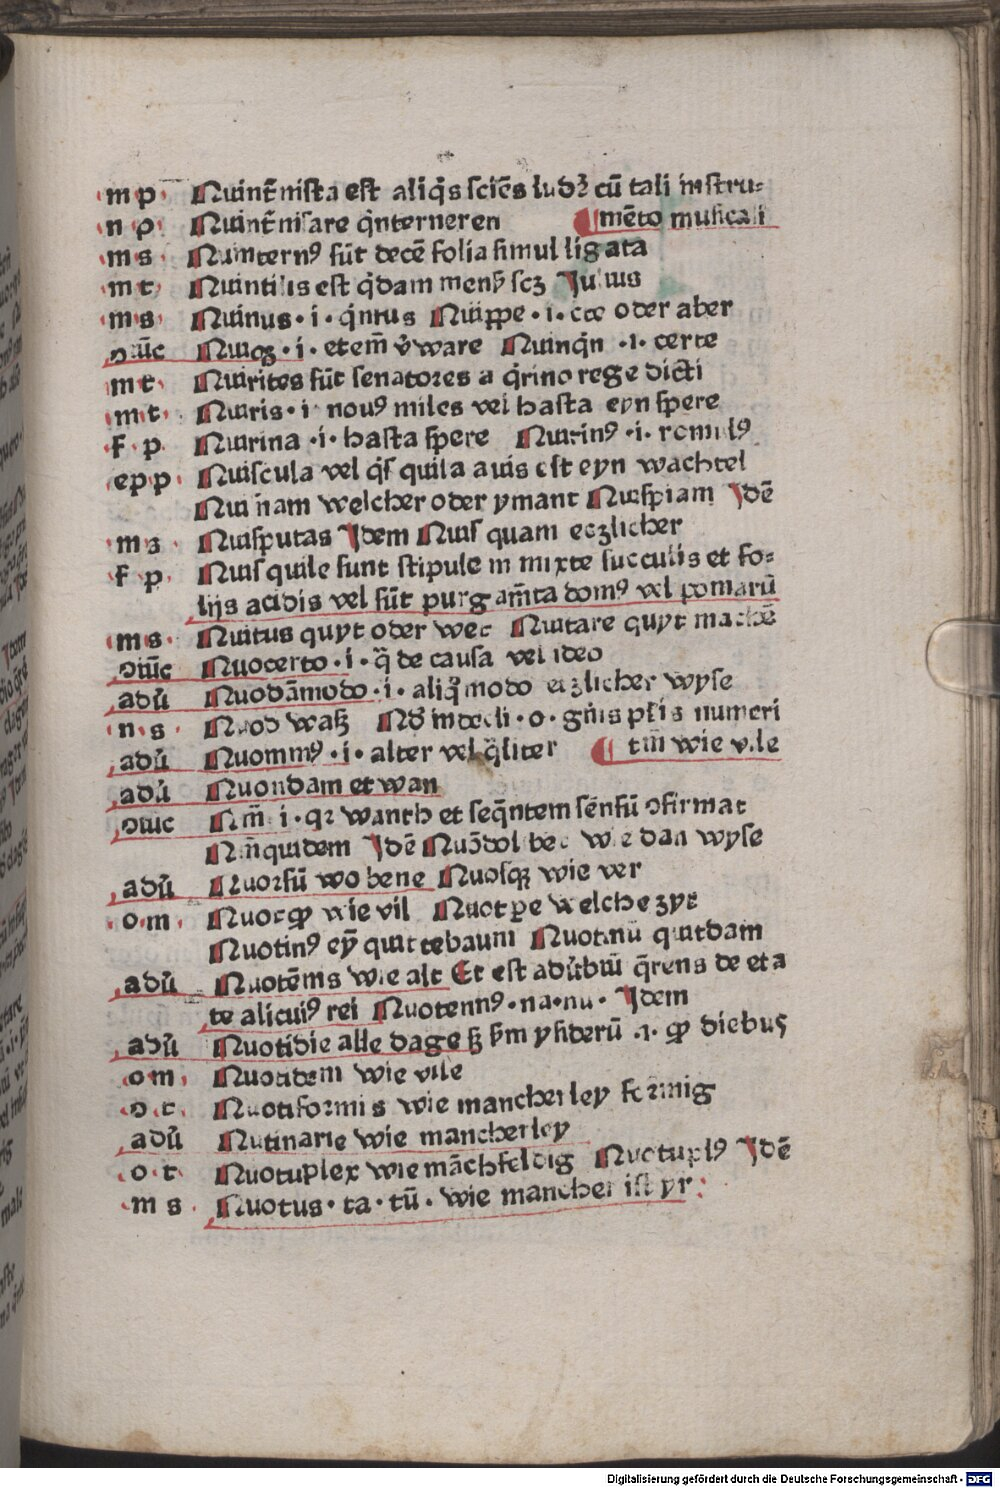 m p Quint̄nista est aliq̄s sciēs ludꝫ cū tali instru⸗
n p Quint̄nisare q̄nterneren ¶ mēto musicali
m s Quinternꝰ sūt decē folia simul ligata
m t Quintilis est q̄dam mens̄ scꝫ Julius
m s Quinus · i · q̄ntus Quippe · i · cce oder aber
ↄiūc Quiqꝫ · i · etem̄ v̄ware Quinq̄n · i · certe
m t Quirites sūt senatores a q̄rino rege dicti
m t Quiris · i · nouꝰ miles vel hasta eyn spere
f p Quirina · i · hasta spere Quirinꝰ · i · romulꝰ
epp Quiscula vel q̄squila auis est eyn wachtel
Qui nam welcher oder ymant Quispiam Idē
m s Quisputas Idem Quisquam eczlicher
f p Quisquile sunt stipule in mixte succulis et fo⸗
lijs acidis vel sūt purgam̄ta domꝰ vel pomarū
m s Quitus quyt oder wec Quitare quyt machē
ↄiūc Quocerto · i · q̄ de causa vel ideo
adū Quodāmodo · i · aliq̄ modo eczlicher wyse
n s Quod waß Qd̄ indecli · o · gn̄is pl̄is numeri
adū Quommꝰ · i · alter vel q̄liter ¶ tm̄ wie vile
adū Quondam et wan
ↄiūc Qm̄ · i · qꝛ wanth et seq̄ntem sēnsū ↄfirmat
Qm̄quidem Idē Quōdolibet wie dan wyse
adū Quorsū wo hene Quosqꝫ wie ver
o m Quotqͣ wie vil Quotpe welche zyt
Quotinꝰ eȳ quittebaum Quotinū quitdam
adū Quotēnis wie alt Et est adūbiū q̄rens de eta
te alicuiꝰ rei Quotennꝰ · na · nu · Idem
adū Quotidie alle dage ꝫ s̄m ysiderū · i · qͣ diebus
o m Quotidem wie vile
o t Quotiformis wie mancherley formig
adū Qutinarie wie mancherley
o t Quotuplex wie māchfeldig Quotuplꝰ Idē
m s Quotus · ta · tū · wie mancher ist yr :
Digitalisierung gefördert durch die Deutsche Forschungsgemeinschaft - DFG